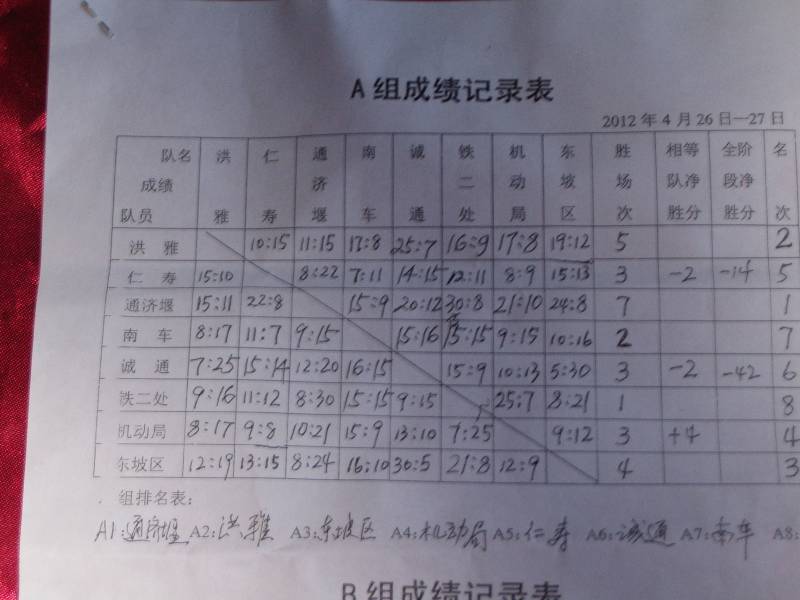 A组成绩记录表
2012年4月26日—27日
队名 成绩 队员 洪雅 仁寿 通济堰 南车 诚通 铁二处 机动局 东坡区 胜场次 相等队净胜分 全阶段净胜分 名次
洪雅 10:15 11:15 17:8 25:7 16:9 17:8 19:12 5 2
仁寿 15:10 8:22 7:11 14:15 12:11 8:9 15:13 3 -2 -14 5
通济堰 15:11 22:8 15:9 20:12 30:8 21:10 24:8 7 1
南车 8:17 11:7 9:15 15:16 15:15 9:15 10:16 2 7
诚通 7:25 15:14 12:20 16:15 15:9 10:13 5:30 3 -2 -42 6
铁二处 9:16 11:12 8:30 15:15 9:15 25:7 8:21 1 8
机动局 8:17 9:8 10:21 15:9 13:10 7:25 9:12 3 +4 4
东坡区 12:19 13:15 8:24 16:10 30:5 21:8 12:9 4 3
组排名表:
A1:通济堰 A2:洪雅 A3:东坡区 A4:机动局 A5:仁寿 A6:诚通 A7:南车 A8:
B组成绩记录表